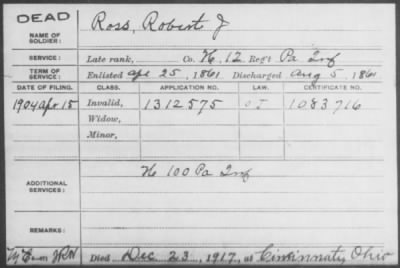 DEAD
NAME OF SOLDIER: Ross, Robert J
SERVICE: Late rank, Co. H, 12 Reg't Pa Inf
TERM OF SERVICE: Enlisted Apr 25, 1861 Discharged Aug 5, 1861
DATE OF FILING. CLASS. APPLICATION NO. LAW. CERTIFICATE NO.
1904 Apr 15 Invalid, 1312575 1083716
Widow,
Minor,
ADDITIONAL SERVICES: H 100 Pa Inf
REMARKS:
Died Dec 23, 1917, at Cincinnati, Ohio